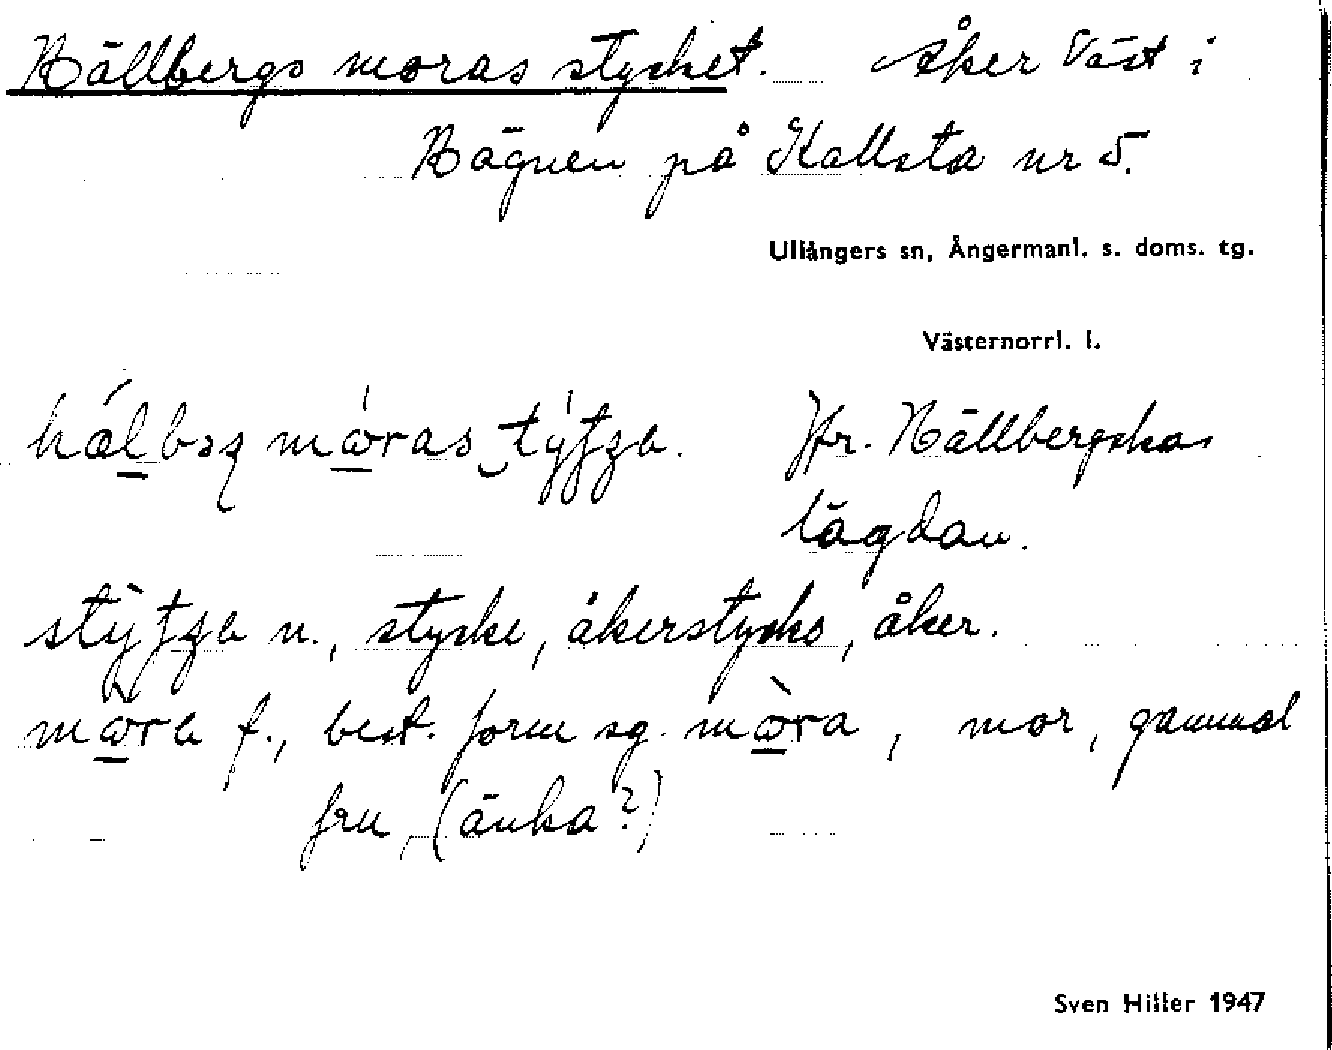 Hällbergs moras stycket. Åker väst i
Hägnen på Kallsta nr 5.
Ullångers sn, Ångermanl. s. doms. tg.
Västernorrl. l.
Jfr. Hällbergskas
lägdan.
n., stycke, åkerstycke, åker.
f., best. form sg. mòra, mor, gammal
fru, (änka?)
Sven Hiller 1947